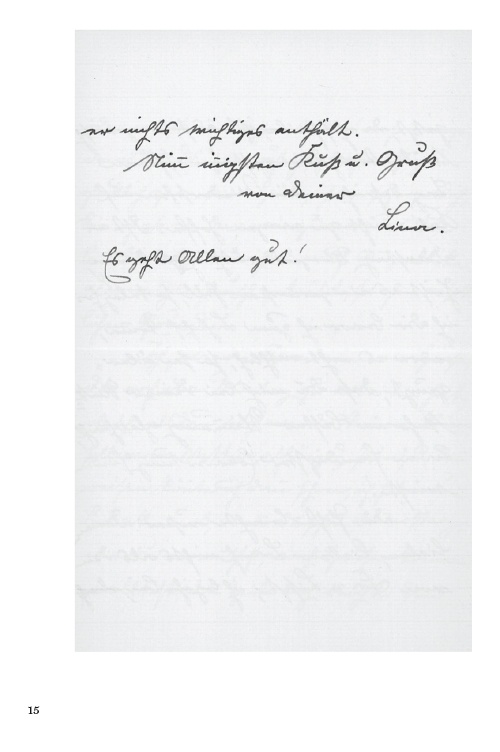 er nichts wichtiges enthält.
Nim̅ in̅igsten Kuß u. Gruß
von Deiner
Lina.
Es geht Allen gut!
15